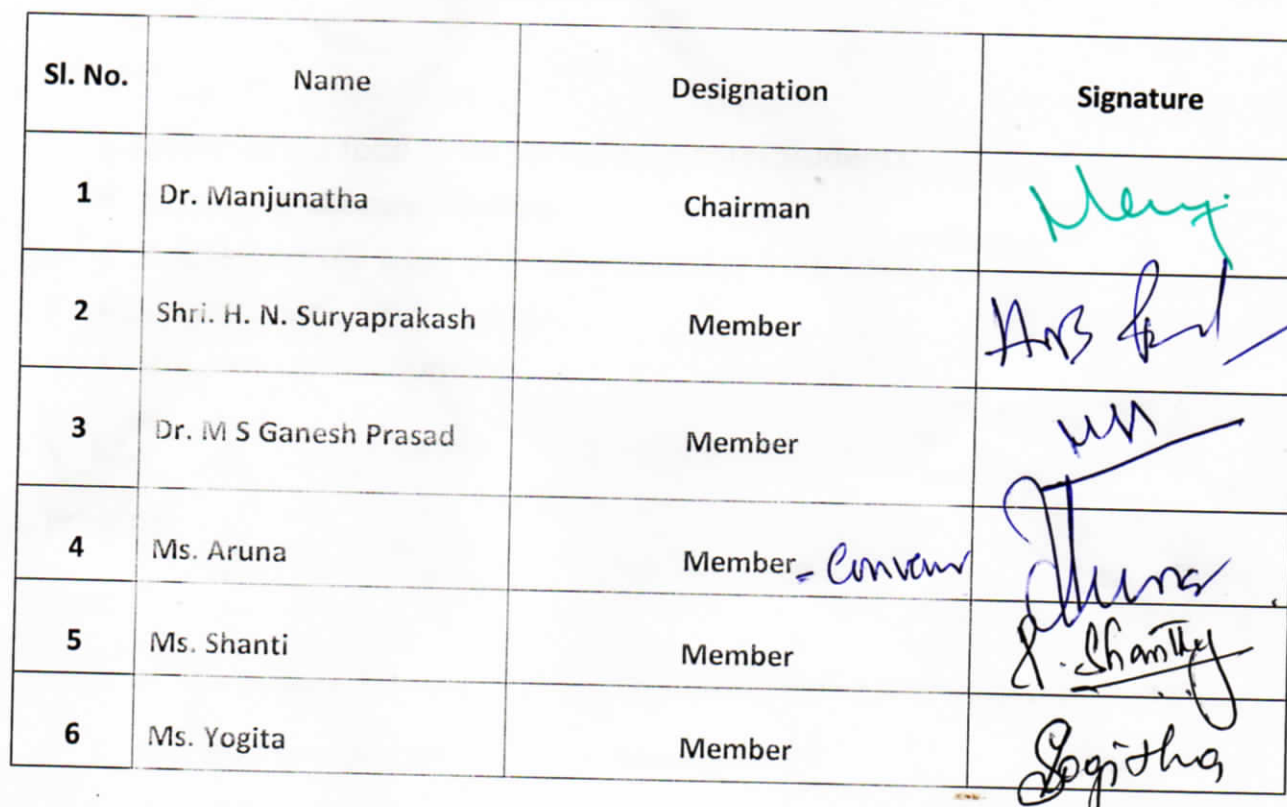 Sl. No. Name Designation Signature
1 Dr. Manjunatha Chairman
2 Shri. H. N. Suryaprakash Member
3 Dr. M S Ganesh Prasad Member
4 Ms. Aruna Member - Convenor Aruna
5 Ms. Shanti Member S. Shanthy
6 Ms. Yogita Member Yogitha